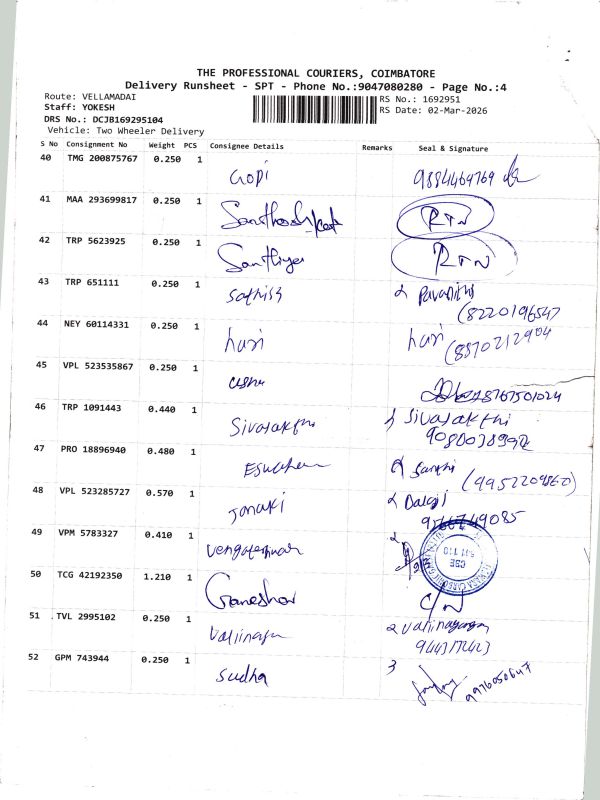 THE PROFESSIONAL COURIERS, COIMBATORE
Delivery Runsheet - SPT - Phone No.:9047080280 - Page No.:4
Route: VELLAMADAI
RS No.: 1692951
Staff: YOKESH
RS Date: 02-Mar-2026
DRS No.: DCJB169295104
Vehicle: Two Wheeler Delivery
S No Consignment No Weight PCS Consignee Details Remarks Seal & Signature
40 TMG 200875767 0.250 1 Gopi 9884464769
41 MAA 293699817 0.250 1 RTN
42 TRP 5623925 0.250 1 Santhiya RTN
43 TRP 651111 0.250 1 Sathish Pavanithi
(8220196547
44 NEY 60114331 0.250 1 hari hari (8870212904
45 VPL 523535867 0.250 1 usha 8767501024
46 TRP 1091443 0.440 1 Sivasakthi Sivasakthi
47 PRO 18896940 0.480 1 (9952209860)
48 VPL 523285727 0.570 1 Janaki Dalaji
9566749085
49 VPM 5783327 0.410 1 CBE
50 TCG 42192350 1.210 1 Ganeshar C/N
51 .TVL 2995102 0.250 1 Vallinayagam
52 GPM 743944 0.250 1 Sudha 3
9976050647